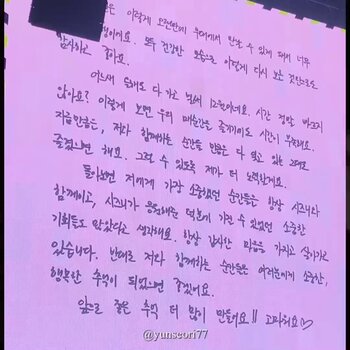 은 이렇게 오랜만에 무대에서 만날 수 있게 돼서 너무
건강한 모습으로 이렇게 다시 보는 것만으로도
감사하고 좋아요.
어느새 올해도 다 가고 벌써 12월이네요. 시간 정말 빠르지
않아요? 이렇게 보면 우리 매순간을 즐기기에도 시간이 부족해요.
지금만큼은, 저와 함께하는 순간들 만큼은 다 잊고 있는 그대로
즐겼으면 해요. 그럴 수 있도록 제가 더 노력할게요.
돌아보면 저에게 가장 소중했던 순간들은 항상 시즈니와
함께이고, 시즈니가 응원해준 덕분에 가질 수 있었던 소중한
기회들도 많았다고 생각해요. 항상 감사한 마음을 가지고 살아가고
있습니다. 반대로 저와 함께하는 순간들은 여러분에게 소중한,
행복한 추억이 되었으면 좋겠어요.
앞으로 좋은 추억 더 많이 만들어요!! 고마워요♡
@yunseori77